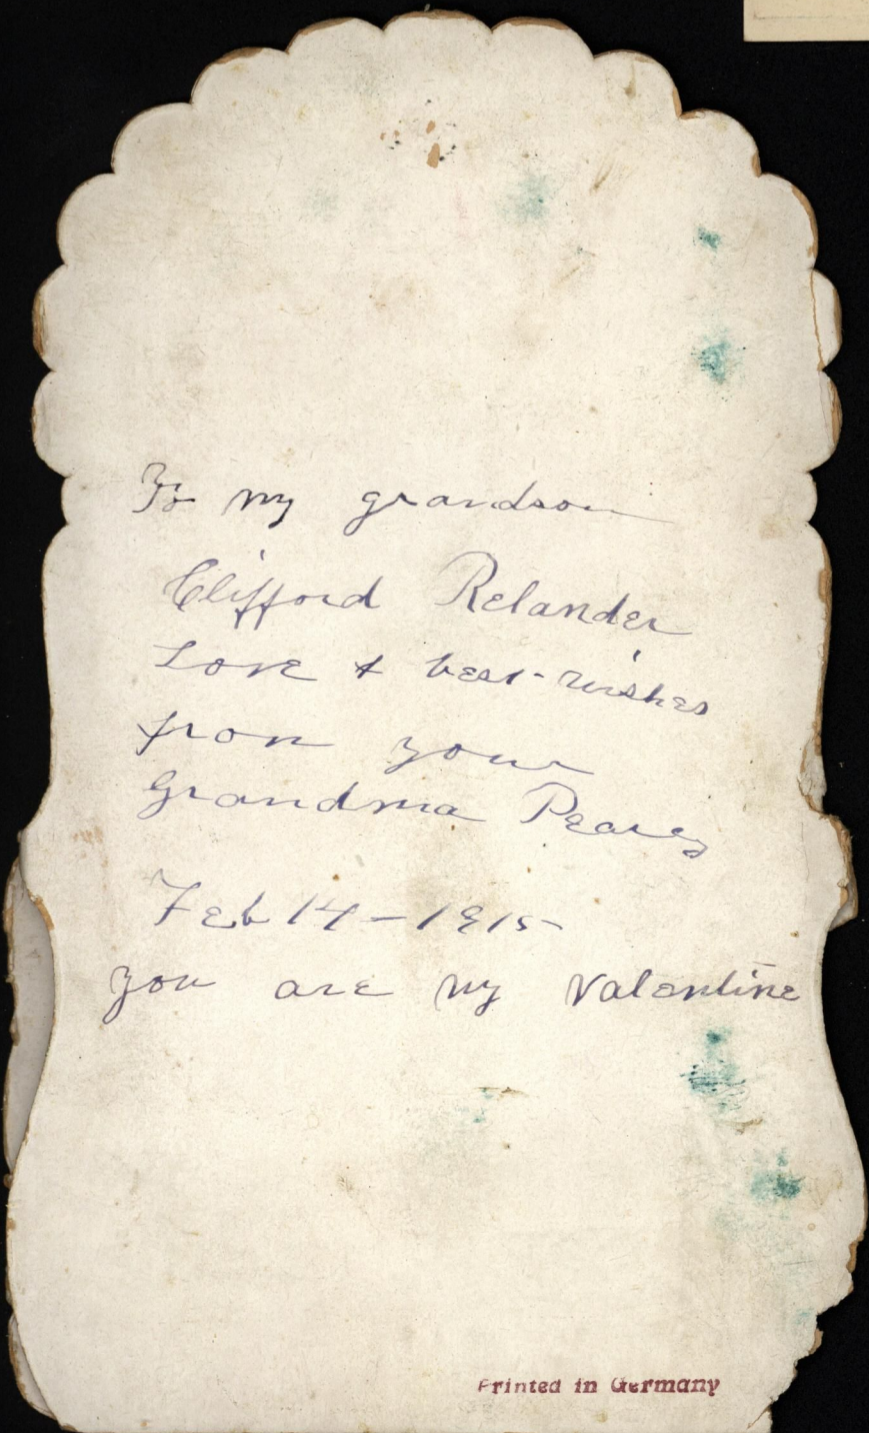 To my grandson
Clifford Relander
Love & best-wishes
from your
Grandma Pearey
Feb 14-1915
you are my Valentine
Printed in Germany